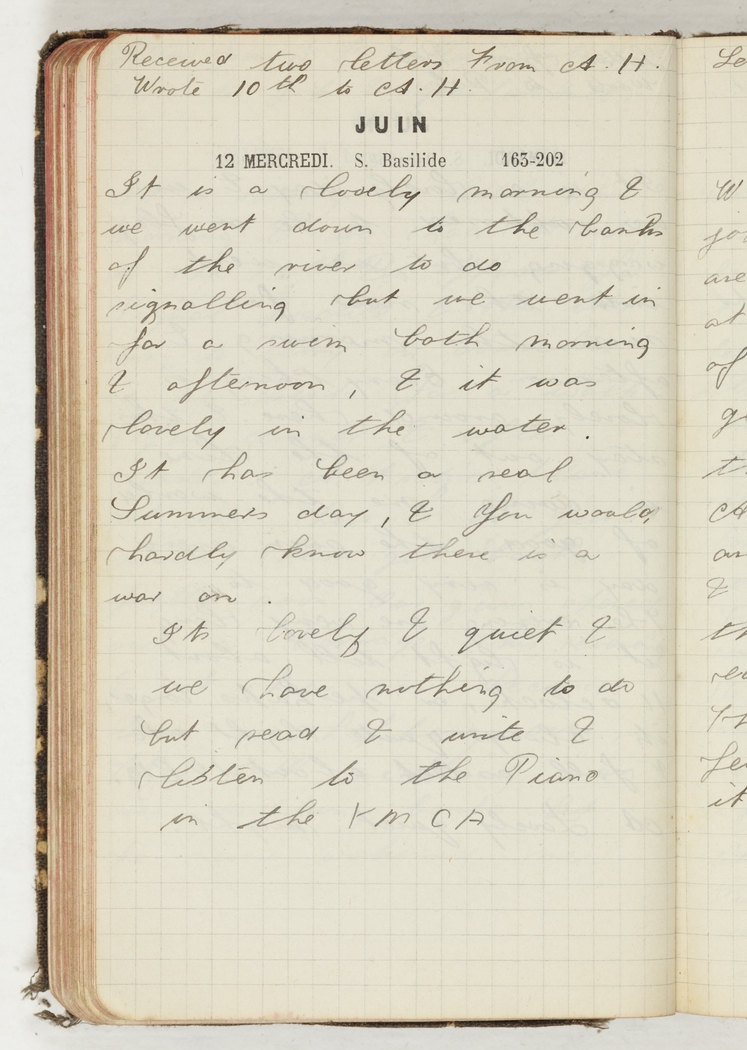 Received two letters From A. H.
Wrote 10th to A. H.
JUIN
12 MERCREDI. S. Basilide 163-202
It is a lovely morning &
we went down to the banks
of the river to do
signalling but we went in
for a swim both morning
& afternoon, & it was
lovely in the water.
It has been a real
Summers day, & you would
hardly know there is a
war on.
Its lovely & quiet &
we have nothing to do
but read & write &
listen to the Piano
in the YMCA
Le
W
jo
are
at
of
ge
t
A
an
&
th
re
Le
it